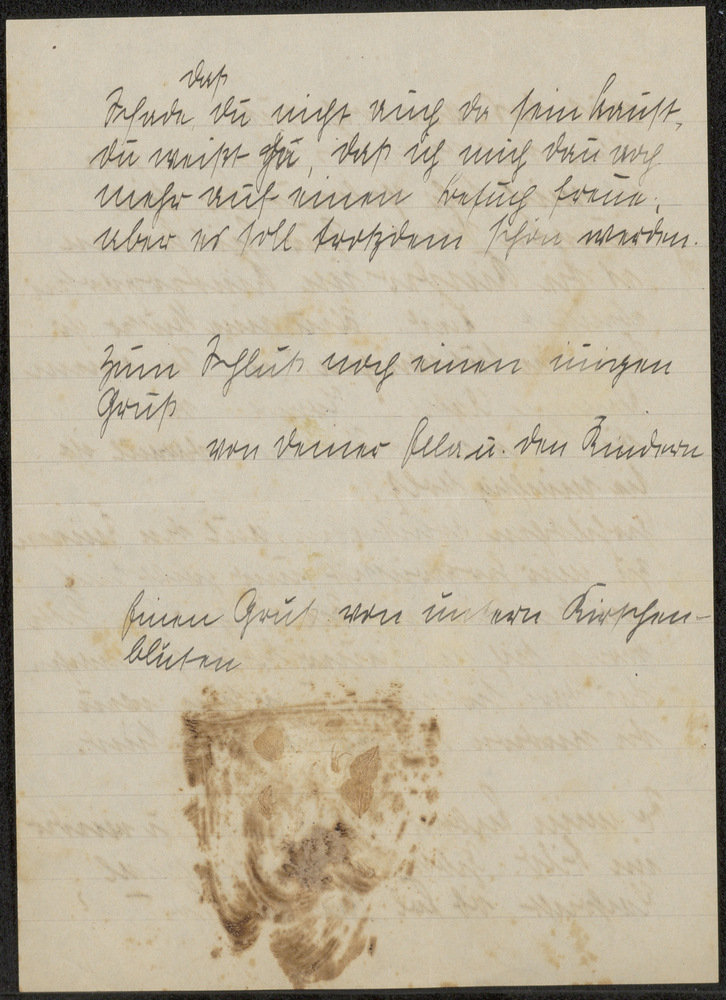 daß
Schade, du nicht auch da sein kannst,
du weißt ja, daß ich mich dann noch
mehr auf einen Besuch freue,
aber es soll trotzdem schön werden.
Zum Schluß noch einen innigen
Gruß
von deiner u. den Kindern
Einen Gruß von unsern Kirschen-
blüten